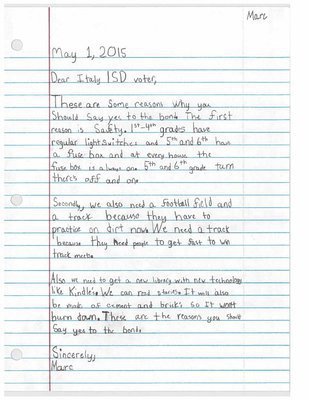 Marc
May 1, 2015
Dear Italy ISD voter,
These are some reasons why you
Should say yes to the bond. The first
reason is Safety. 1st-4th grades have
regular lightswitches and 5th and 6th has
a fuse box and at every house the
fuse box is always one. 5th and 6th grade turn
there's off and on.
Secondly, we also need a football field and
a track because they have to
practice on dirt now. We need a track
because they need people to get fast to win
track meets.
Also we need to get a new library with new technology
like Kindles. We can read stories. It will also
be made of cement and bricks so it won't
burn down. These are the reasons you should
say yes to the bond.
Sincerely,
Marc